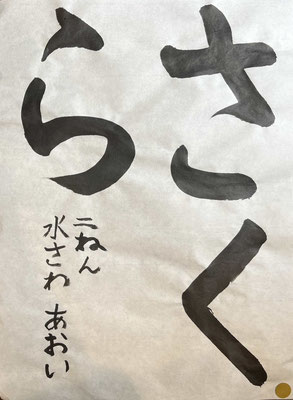 さく
ら
二ねん
水さわ あおい